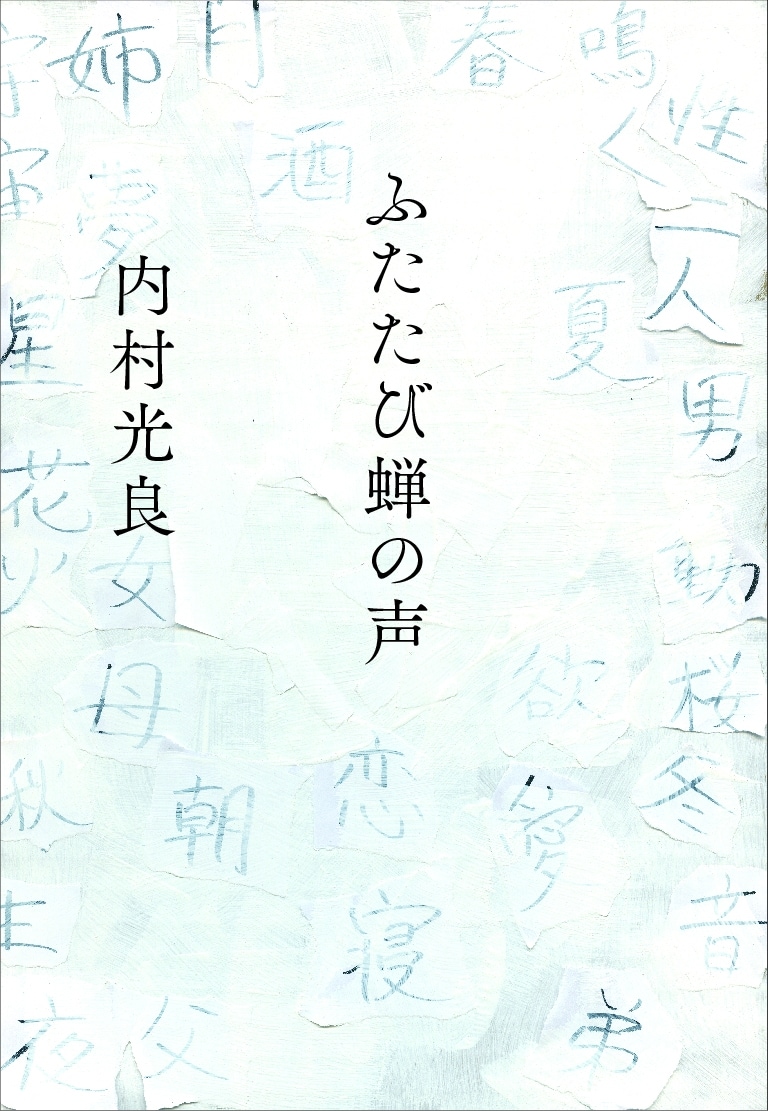 ふたたび蝉の声
内村光良
姉
月
春
鳴
く
性
字
宙
酒
夢
二人
夏
星
男
花火
女
動
母
欲
桜
秋
朝
恋
愛
冬
生
寝
音
夜
父
弟